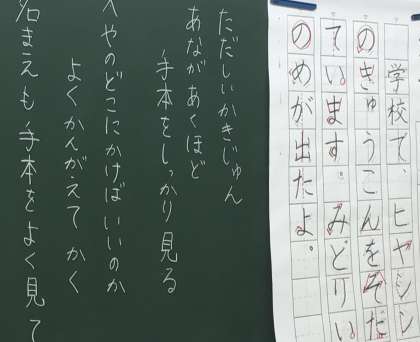 学校で、ヒヤシン
のきゅうこんをそだ
ています。みどりい
のめが出たよ。
ただしいかきじゅん
あながあくほど
手本をしっかり見る
へやのどこにかけばいいのか
よくかんがえてかく
名まえも手本をよく見て